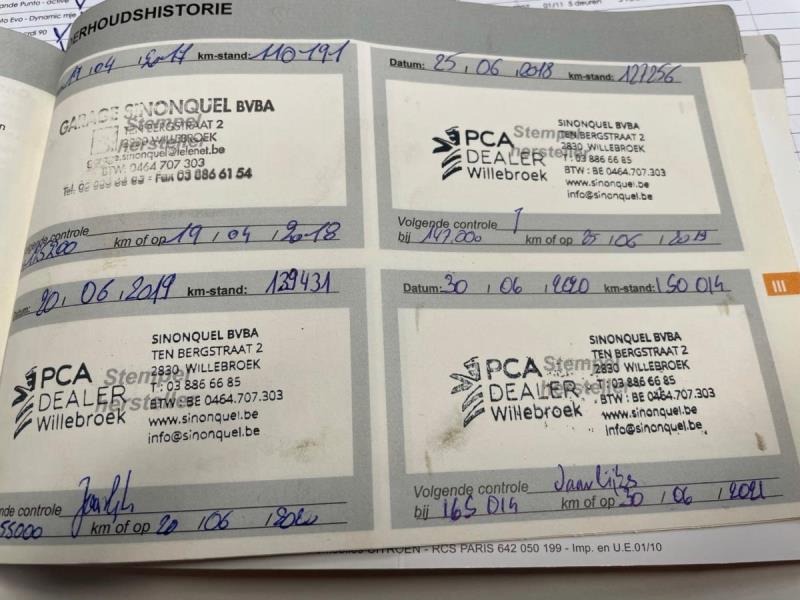 Punto - active
Evo - Dynamic mje
01/11 5 deuren
ERHOUDSHISTORIE
19 04 2017 km-stand: 110-191
GARAGE SINONQUEL BVBA
Stempel
TEN BERGSTRAAT 2
2830 WILLEBROEK
hersteller
sinonquel@telenet.be
BTW: 0464 707 303
Fax 03 886 61 54
gende controle
km of op 19 04 2018
Datum: 25 06 2018 km-stand: 127256
PCA
DEALER
Willebroek
Stempel
hersteller
SINONQUEL BVBA
TEN BERGSTRAAT 2
2830 WILLEBROEK
T : 03 886 66 85
BTW : BE 0464.707.303
www.sinonquel.be
info@sinonquel.be
Volgende controle
bij 147.000 km of op 25 06 2019
20, 06, 2019 km-stand: 139431
PCA
DEALER
Willebroek
Stempel
hersteller
SINONQUEL BVBA
TEN BERGSTRAAT 2
2830 WILLEBROEK
T : 03 886 66 85
BTW : BE 0464.707.303
www.sinonquel.be
info@sinonquel.be
nde controle
55000 km of op 20 06 2020
Datum: 30 06 2020 km-stand: 150 014
PCA
DEALER
Willebroek
Stempel
hersteller
SINONQUEL BVBA
TEN BERGSTRAAT 2
2830 WILLEBROEK
T : 03 886 66 85
BTW : BE 0464.707.303
www.sinonquel.be
info@sinonquel.be
Volgende controle Jaarlijks
bij 165 014 km of op 30 06 2021
III
CITROËN - RCS PARIS 642 050 199 - Imp. en U.E.01/10